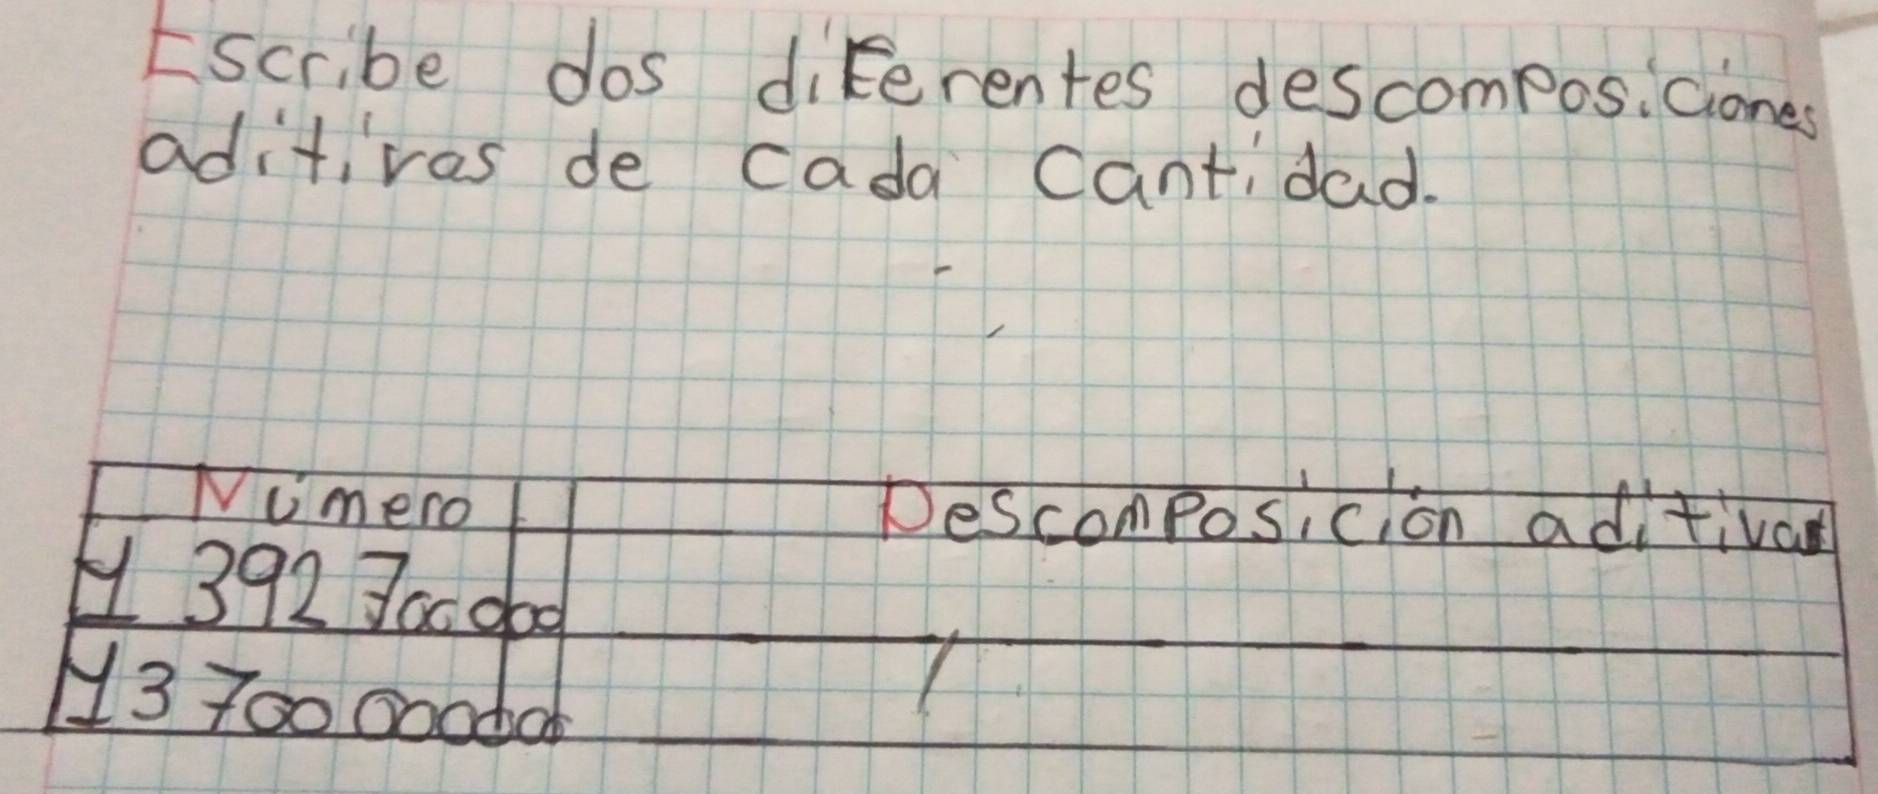 Escribe dos diferentes descomposiciones
aditivas de cada cantidad.
Número Descomposición aditivas
1 392 700 000
13 700 000 000